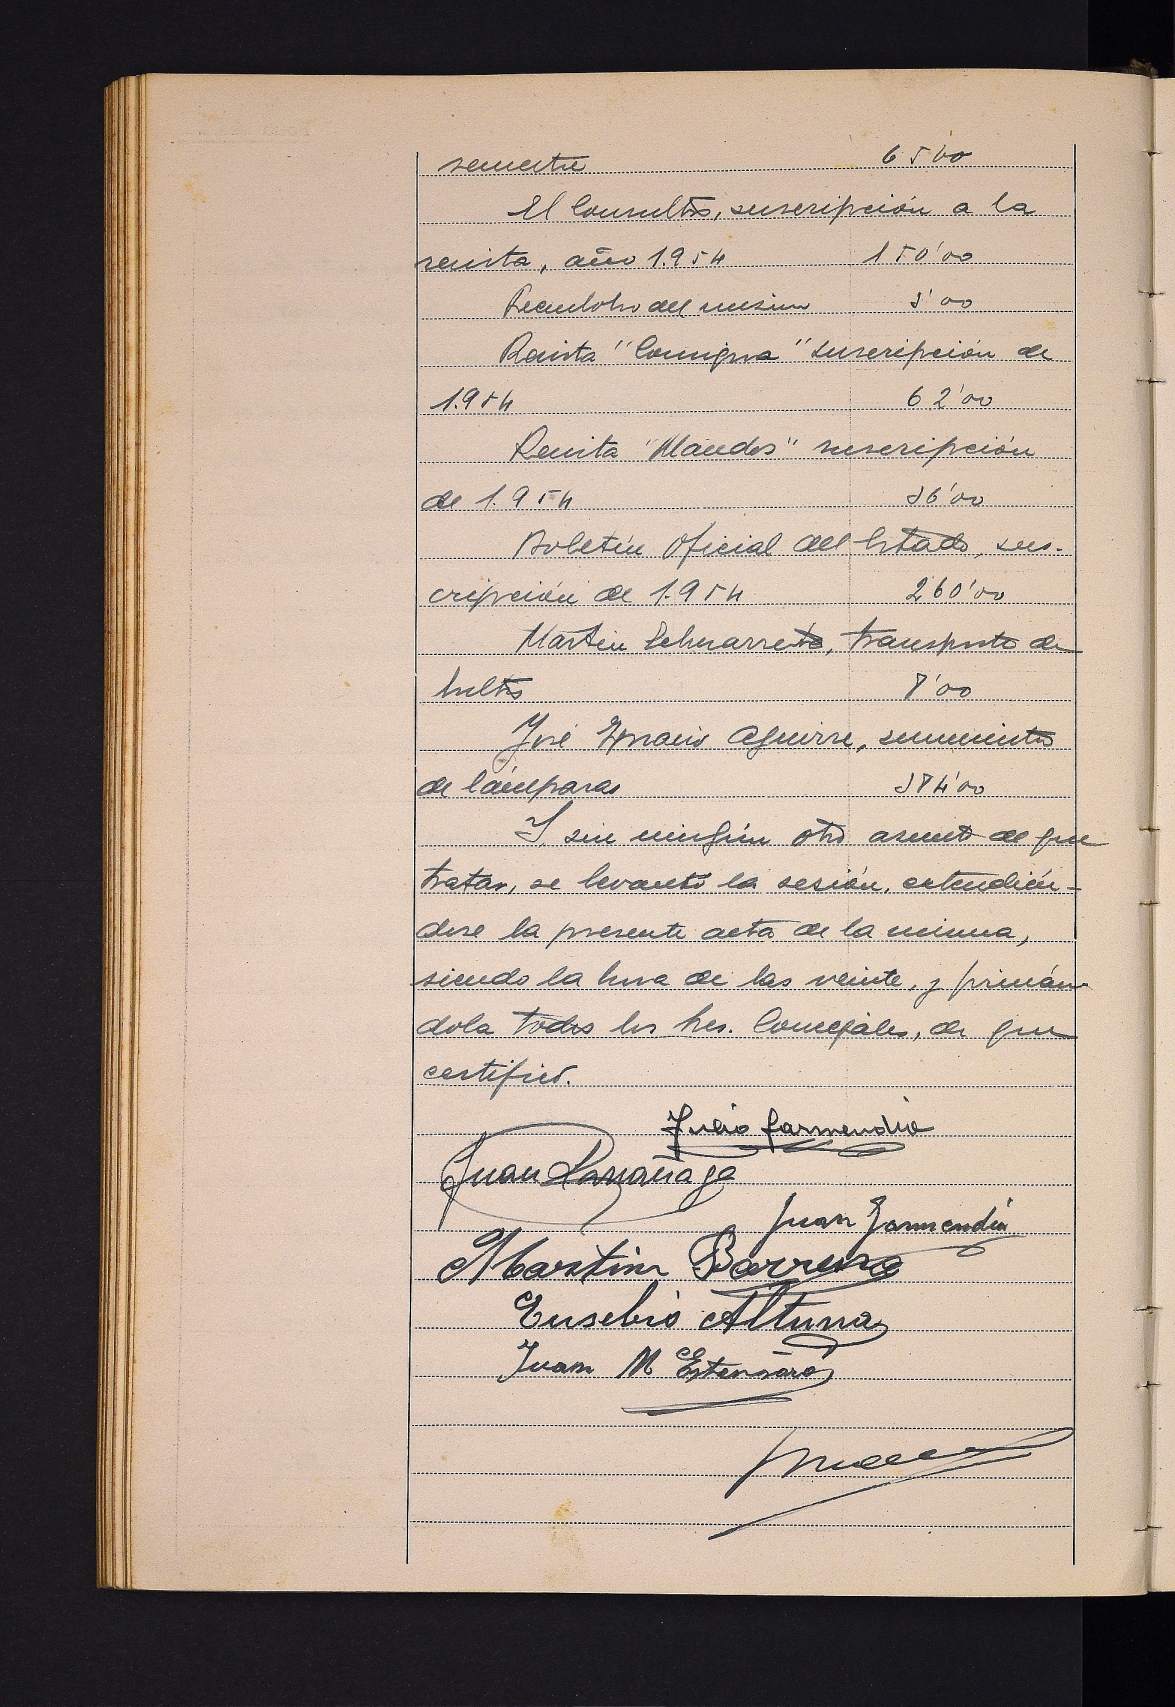 semestre 65'00
El Consultor, suscripción a la
revista, año 1.954 150'00
Reembolso del mismo 3'00
Revista "Consigna" suscripción de
1.954 62'00
Revista "Mandos" suscripción
de 1.954 36'00
Boletín Oficial del Estado, sus-
cripción de 1.954 260'00
Martín Echevarreta, transporte de
bultos 8'00
José Ignacio Aguirre, suministro
de lámparas 384'00
Y sin ningún otro asunto de que
tratar, se levantó la sesión, extendién-
dose la presente acta de la misma,
siendo la hora de las veinte, y firmán-
dola todos los Sres. Concejales, de que
certifico.
Julio Garmendia
Juan Larrañaga
Juan Garmendia
Martin Barrena
Eusebio Altuna
Juan M Estensoro